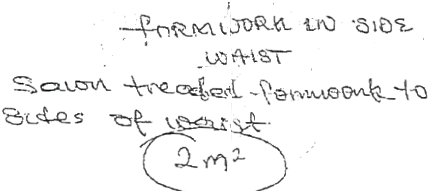 FORMWORK IN SIDE
WAIST
Sawn treated formwork to
Sides of waist
2m²